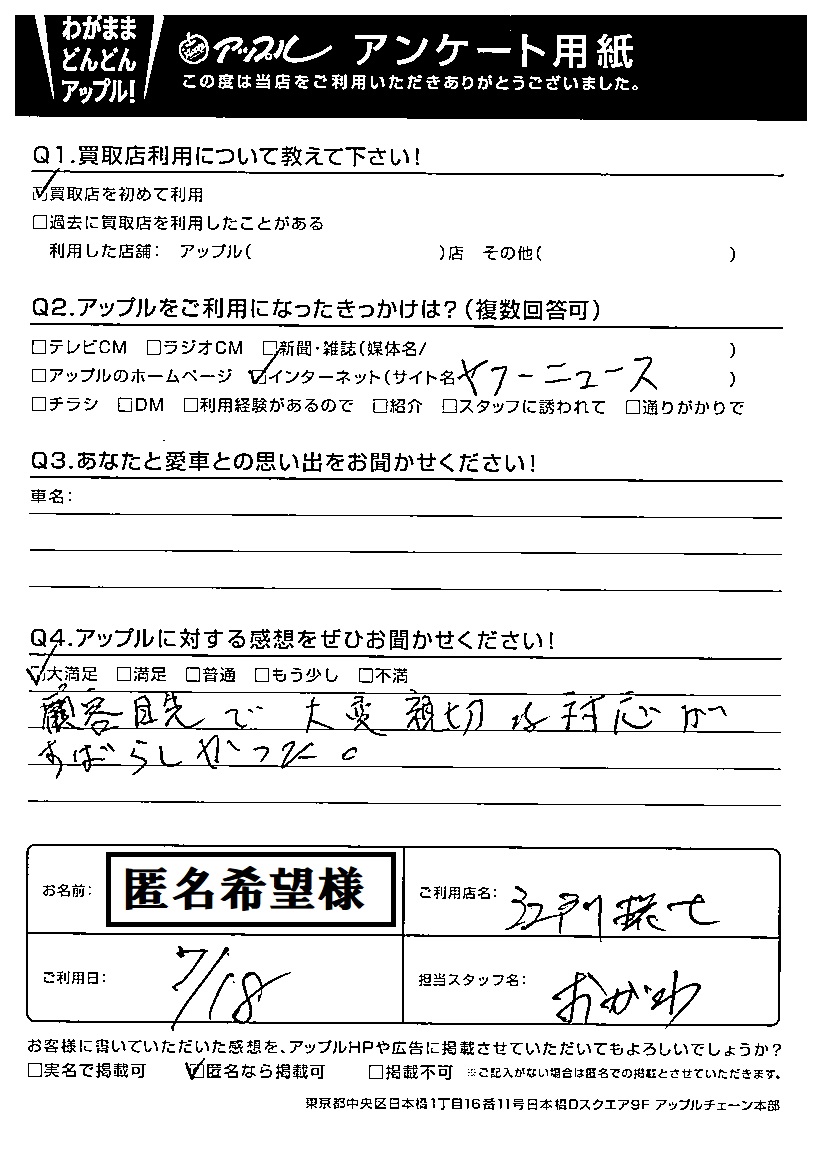 わがまま
どんどん
アップル!
アップル アンケート用紙
この度は当店をご利用いただきありがとうございました。
Q1.買取店利用について教えて下さい!
☑買取店を初めて利用
□過去に買取店を利用したことがある
利用した店舗: アップル( )店 その他( )
Q2.アップルをご利用になったきっかけは?(複数回答可)
□テレビCM □ラジオCM □新聞・雑誌(媒体名/ )
□アップルのホームページ ☑インターネット(サイト名 ヤフーニュース )
□チラシ □DM □利用経験があるので □紹介 □スタッフに誘われて □通りがかりで
Q3.あなたと愛車との思い出をお聞かせください!
車名:
Q4.アップルに対する感想をぜひお聞かせください!
☑大満足 □満足 □普通 □もう少し □不満
顧客目先で大変親切な対応が
すばらしかった。
お名前: 匿名希望様
ご利用店名:
ご利用日: 7/18
担当スタッフ名: おがわ
お客様に書いていただいた感想を、アップルHPや広告に掲載させていただいてもよろしいでしょうか?
□実名で掲載可 ☑匿名なら掲載可 □掲載不可 ※ご記入がない場合は匿名での掲載とさせていただきます。
東京都中央区日本橋1丁目16番11号日本橋Dスクエア9F アップルチェーン本部